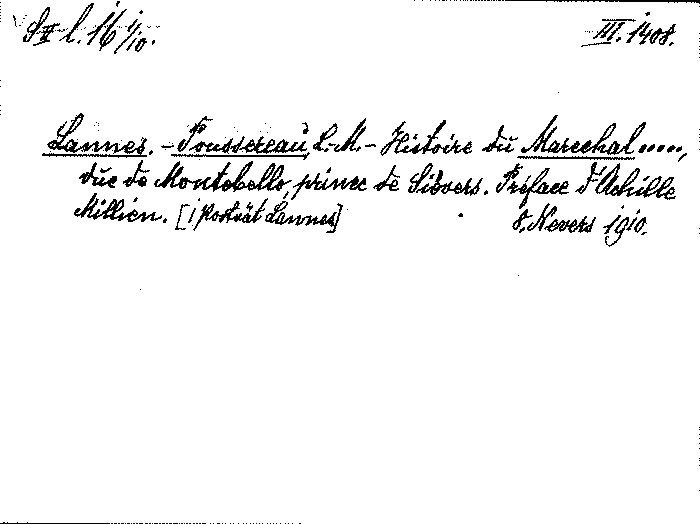 S II l. 16 1/10. III. 1408.
Lannes. - Poussereau, L.-M. - Histoire du Marechal .....,
duc de Montebello, prince de Siévers. Préface d'Achille
Millien. [1 Porträt Lannes] 8. Nevers 1910.